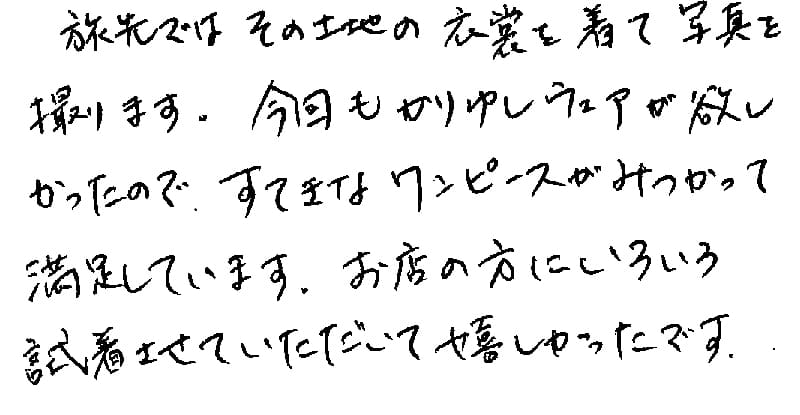 旅先ではその土地の衣裳を着て写真を
撮ります。今回もかりゆしウェアが欲し
かったので、すてきなワンピースがみつかって
満足しています。お店の方にいろいろ
試着させていただいて嬉しかったです。